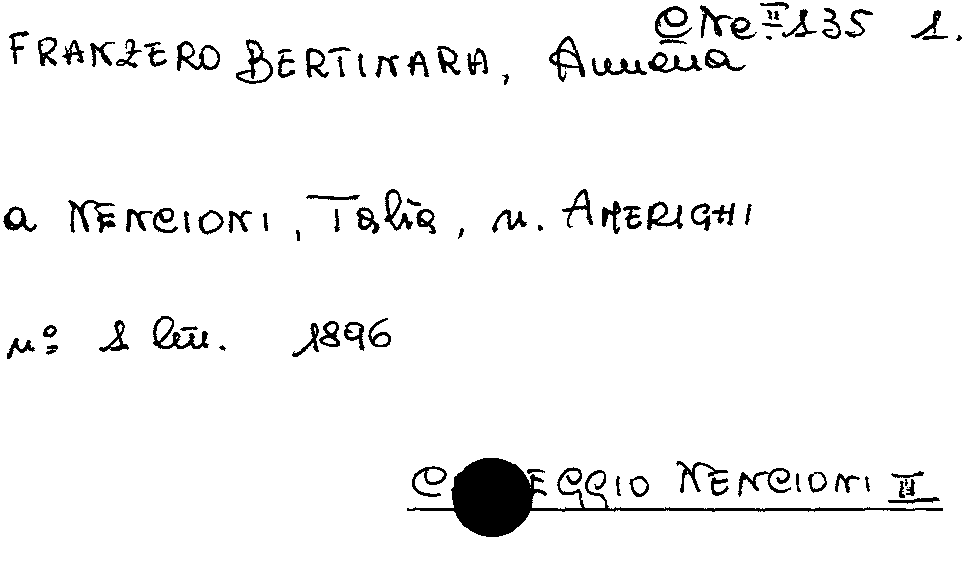 C Ne II 135 1.
FRANZERO BERTINARA, Annena
a NENCIONI, Talia, n. AMERIGHI
nº 1 lett. 1896
C EGGIO NENCIONI II